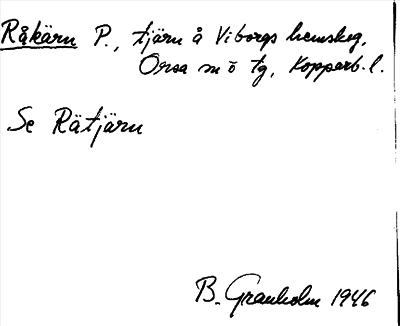 Råkärn P., tjärn å Viborgs hemskog,
Orsa sn o tg, Kopparb. l.
Se Rätjärn
B. Granholm 1946